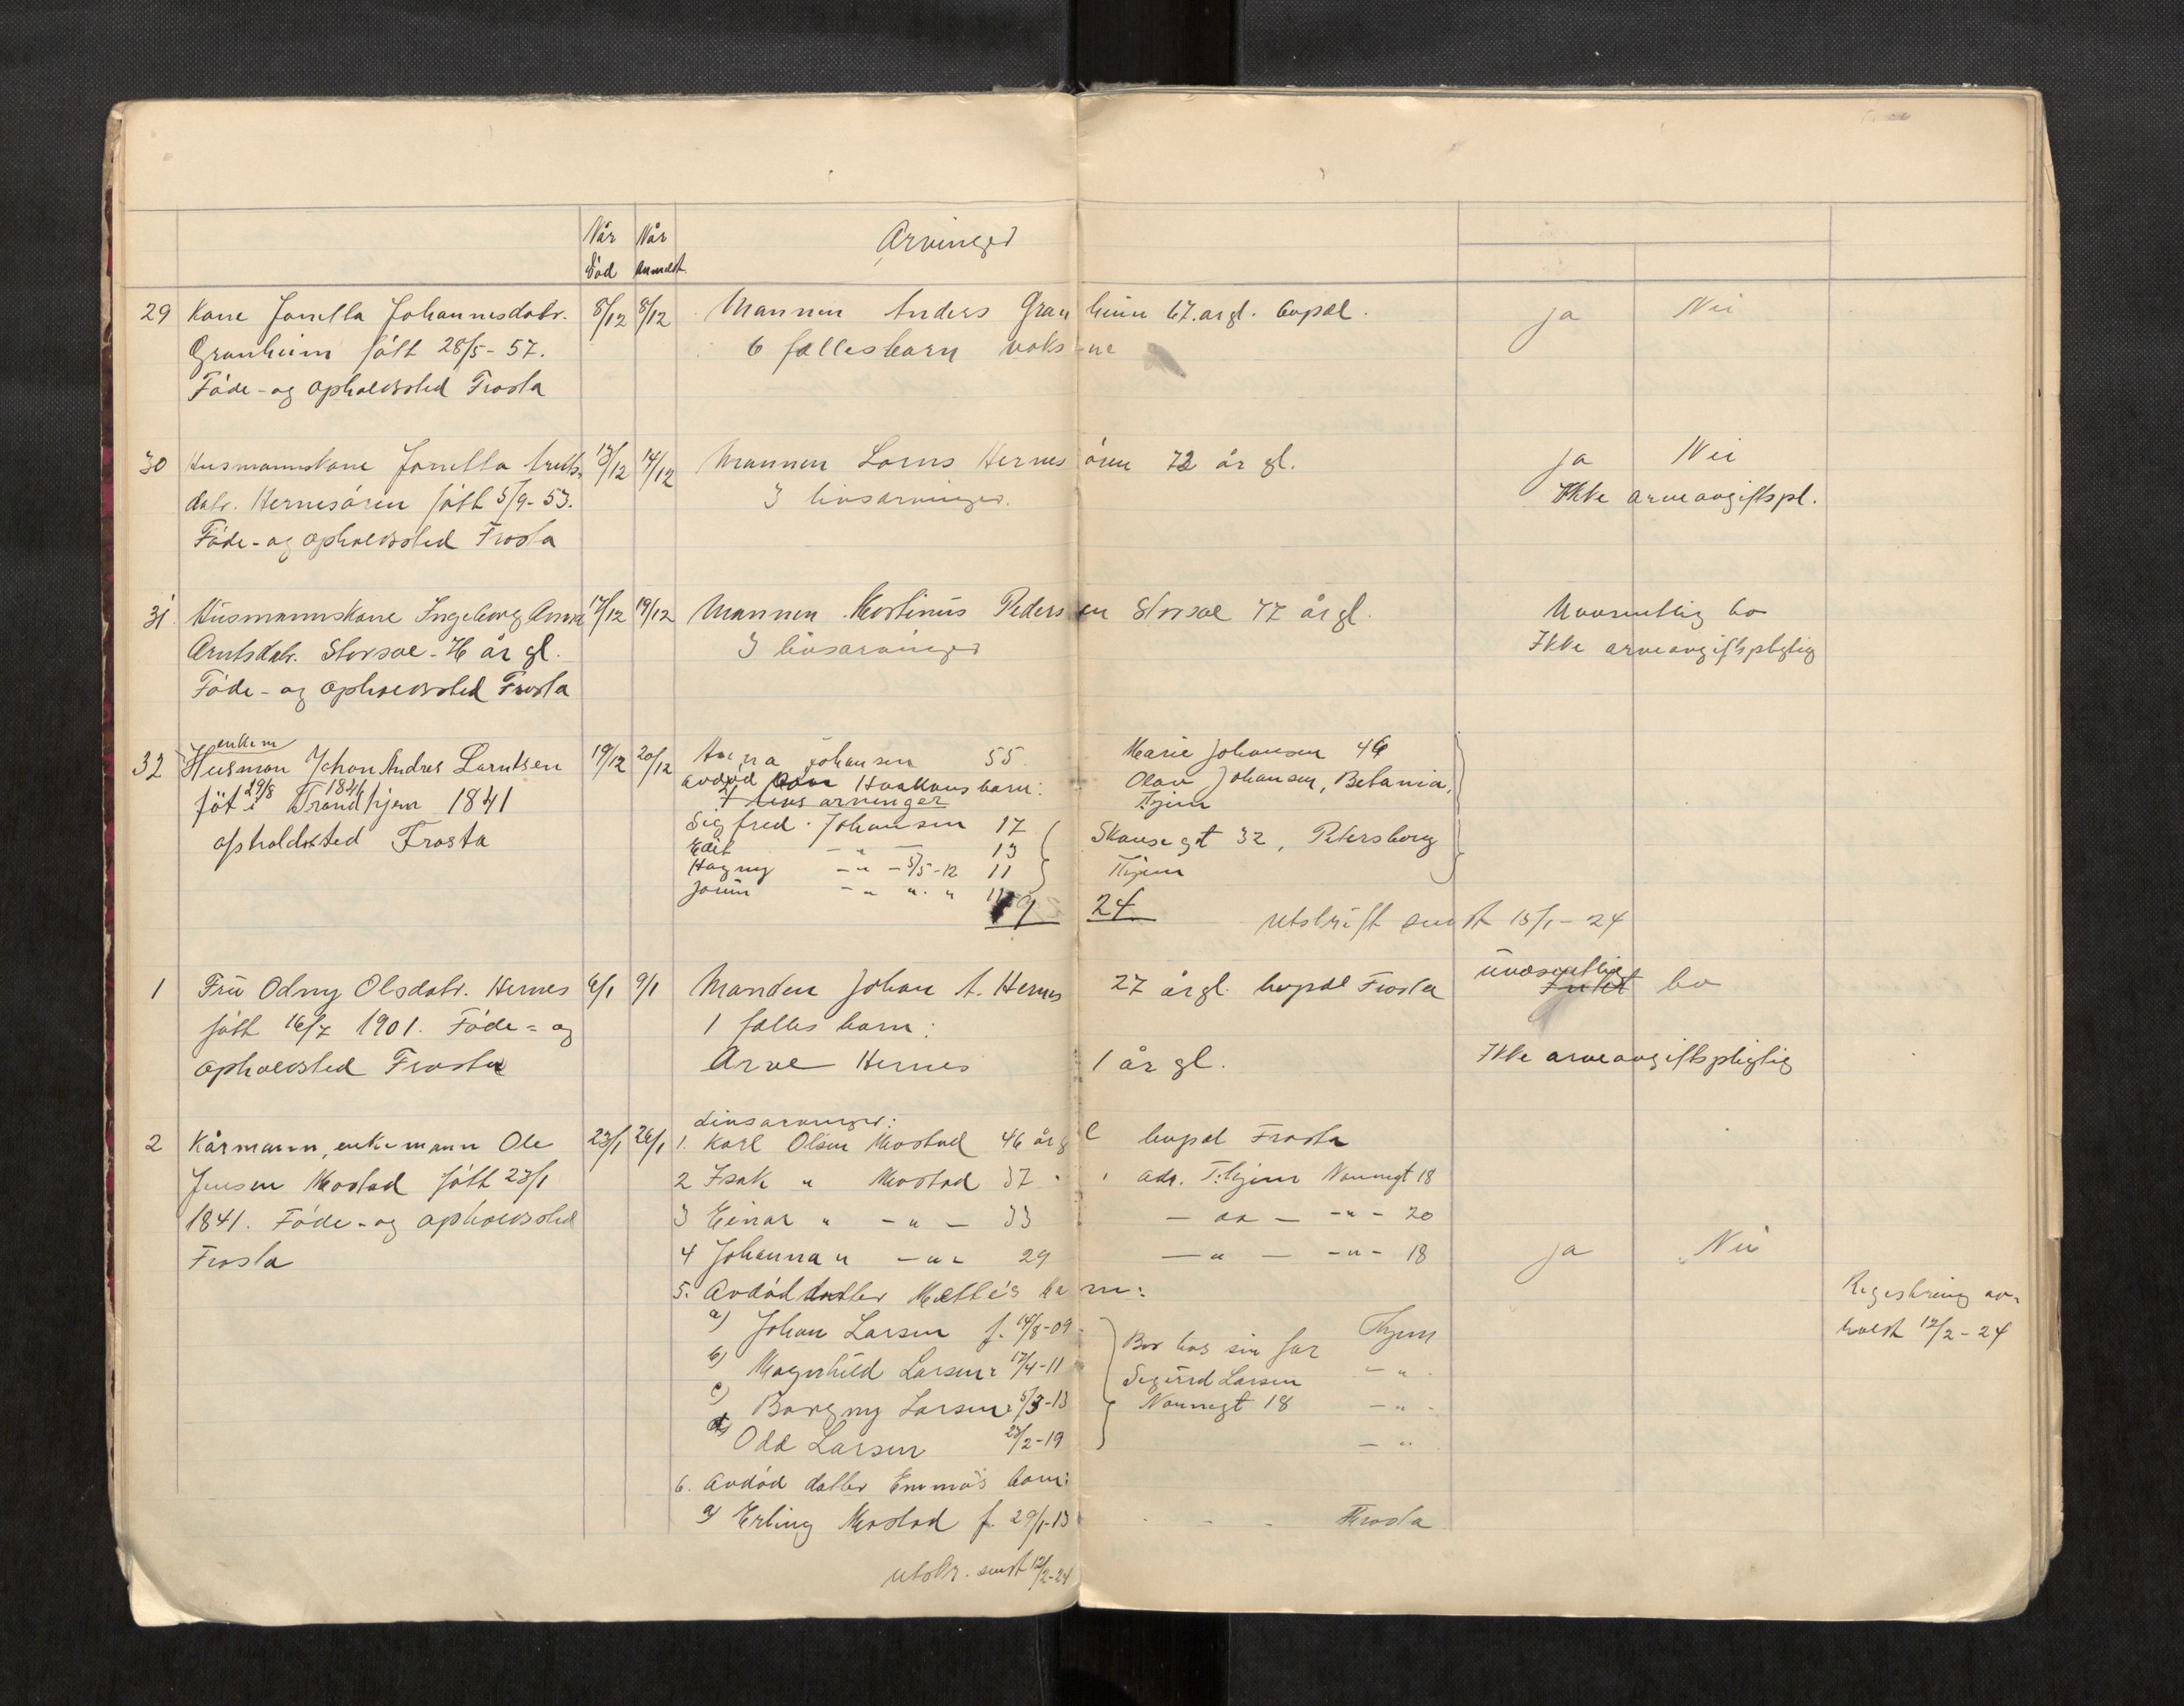 Når Når Arvinger
död anmeldt.
29 Kone Jonetta Johannesdatr. 8/12 8/12 Mannen Anders Granheim 67 år gl. bopæl. ja Nei
Granheim født 28/5-57. 6 fællesbarn voksne
Føde- og opholdssted Frosta
30 Husmannskone Jonetta Arnts- 13/12 14/12 Mannen Lorns Hernesøren 72 år gl. ja Nei
datr. Hernesøren født 5/9-53. 3 livsarvinger. Ikke arveavgiftspl.
Føde- og opholdssted Frosta
31. Husmannskone Ingeborg Anna 17/12 19/12 Mannen Martinus Pedersen Storsve 77 år gl. Uvæsentlig bo
Arntsdatr. Storsve - 76 år gl. 3 livsarvinger Ikke arveavgiftspligtig
Føde- og opholdssted Frosta
enkem
32 Husman Johan Andres Larntsen 19/12 20/12 Anna Johansen 55. Marie Johansen 46
29/8 1841 avdød Haakons barn: Olav Johansen, Betania,
föt i Trondhjem 1841 7 livs arvinger Thjem
Sigfred Johansen 17 Skansegt 32, Petersborg
opholdssted Frosta Edit — " — 13
Hagny — " — 5/5-12 11 Thjem
Jorun — " " " 11
24 Utskrift sendt 15/1-24
1 Fru Odny Olsdatr. Hernes 6/1 9/1 Manden Johan A. Hernes 27 år gl. bopæl Frosta uvæsentlig bo
født 16/7 1901. Føde- og 1 fælles barn:
opholdssted Frosta Arve Hernes 1 år gl. Ikke arveavgiftspligtig
Livsarvinger:
2 Kårmann, enkemann Ole 23/1 26/1 1. Karl Olsen Mostad 46 år gl bopæl Frosta
Jensen Mostad født 23/1 2 Isak " Mostad 37 " adr. T.hjem Nonnegt 18
1841. Føde- og opholdssted 3 Einar " — " — 33 — " — — " — 20
Frosta 4 Johanna " — " — 29 — " — — " — 18 ja Nei
5. Avdød datter Mette's barn: Registrering av-
a) Johan Larsen f. 14/8-09 Bor hos sin far Thjem holdt 12/2-24
b) Magnhild Larsen " 17/4-11 Sigurd Larsen — " —
c) Borgny Larsen " 5/3-13 Nonnegt 18 — " —
d) Odd Larsen 23/2-19 — " —
6. Avdød datter Emma's barn:
a) Erling Mostad f. 29/1-13 Frosta
utskr. sendt 12/2-24